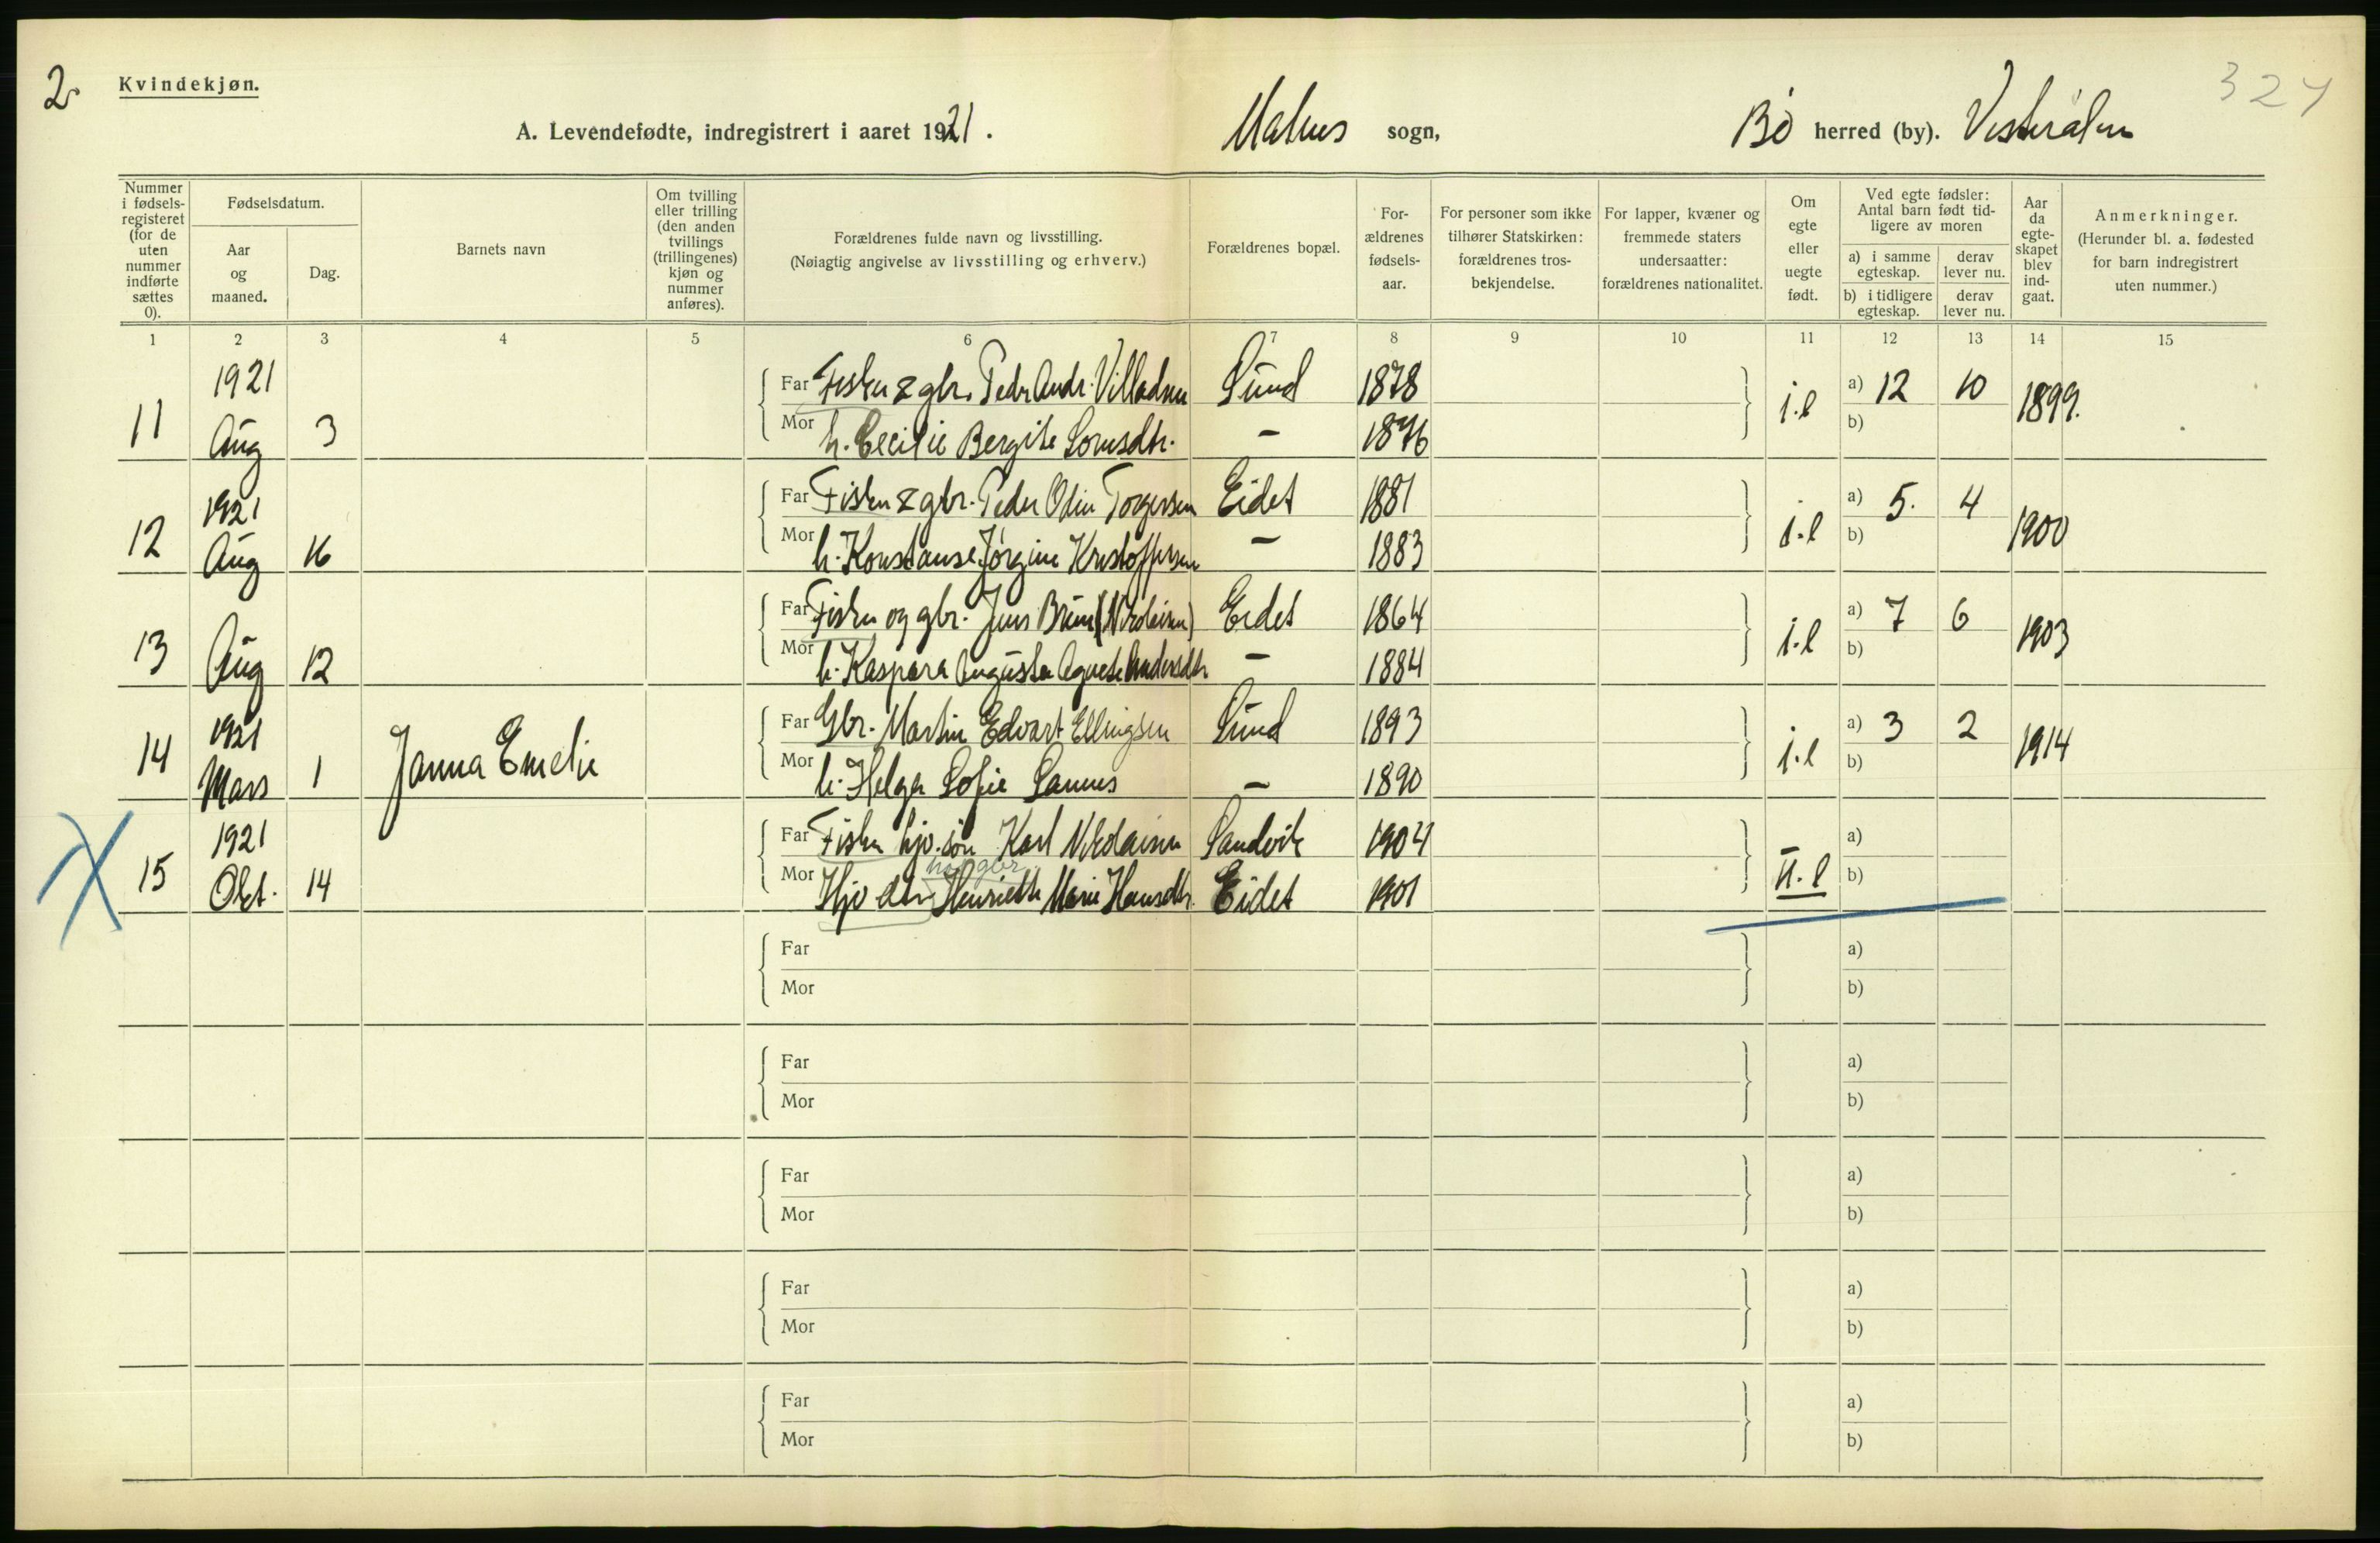 2.
Kvindekjøn.
327
A. Levendefødte, indregistrert i aaret 1921.
Malnes sogn, Bø herred (by). Vesterålen
Nummer i fødselsregisteret (for de uten nummer indførte sættes 0).
Fødselsdatum.
Aar og maaned.
Dag.
Barnets navn
Om tvilling eller trilling (den anden tvillings (trillingenes) kjøn og nummer anføres).
Forældrenes fulde navn og livsstilling.
(Nøiagtig angivelse av livsstilling og erhverv.)
Forældrenes bopæl.
Forældrenes fødselsaar.
For personer som ikke tilhører Statskirken: forældrenes trosbekjendelse.
For lapper, kvæner og fremmede staters undersaatter: forældrenes nationalitet.
Om egte eller uegte født.
Ved egte fødsler: Antal barn født tidligere av moren
a) i samme egteskap.
derav lever nu.
b) i tidligere egteskap.
derav lever nu.
Aar da egteskapet blev indgaat.
Anmerkninger.
(Herunder bl. a. fødested for barn indregistrert uten nummer.)
1 2 3 4 5 6 7 8 9 10 11 12 13 14 15
1921 Far Fisker & gbr. Peder Andr. Villadsen Sund 1878 a) 12 10
11 Aug 3 Mor h. Cecilie Bergite Lornsdtr. – 1876 i.e b) 1899.
1921 Far Fisker & gbr. Peder Odin Torgersen Eidet 1881 a) 5. 4
12 Aug 16 Mor h. Konstanse Jørgine Kristoffersen – 1883 i.e b) 1900
Far Fisker og gbr. Jens Brun (Nikolaisen) Eidet 1864 a) 7 6
13 Aug 12 Mor h. Kaspara Augusta Agnete Andersdtr – 1884 i.e b) 1903
1921 Far Gbr. Martin Edvart Ellingsen Sund 1893 a) 3 2
14 Mars 1 Janna Emelie Mor h. Helga Sofie – 1890 i.e b) 1914
1921 Far Fisker hjv. søn Karl Nikolaisen Sandvik 1904 a)
hos gbr
15 Okt. 14 Mor Hjv dtr Henriette Marie Hansdtr. Eidet 1901 U.e b)
Far a)
Mor b)
Far a)
Mor b)
Far a)
Mor b)
Far a)
Mor b)
Far a)
Mor b)